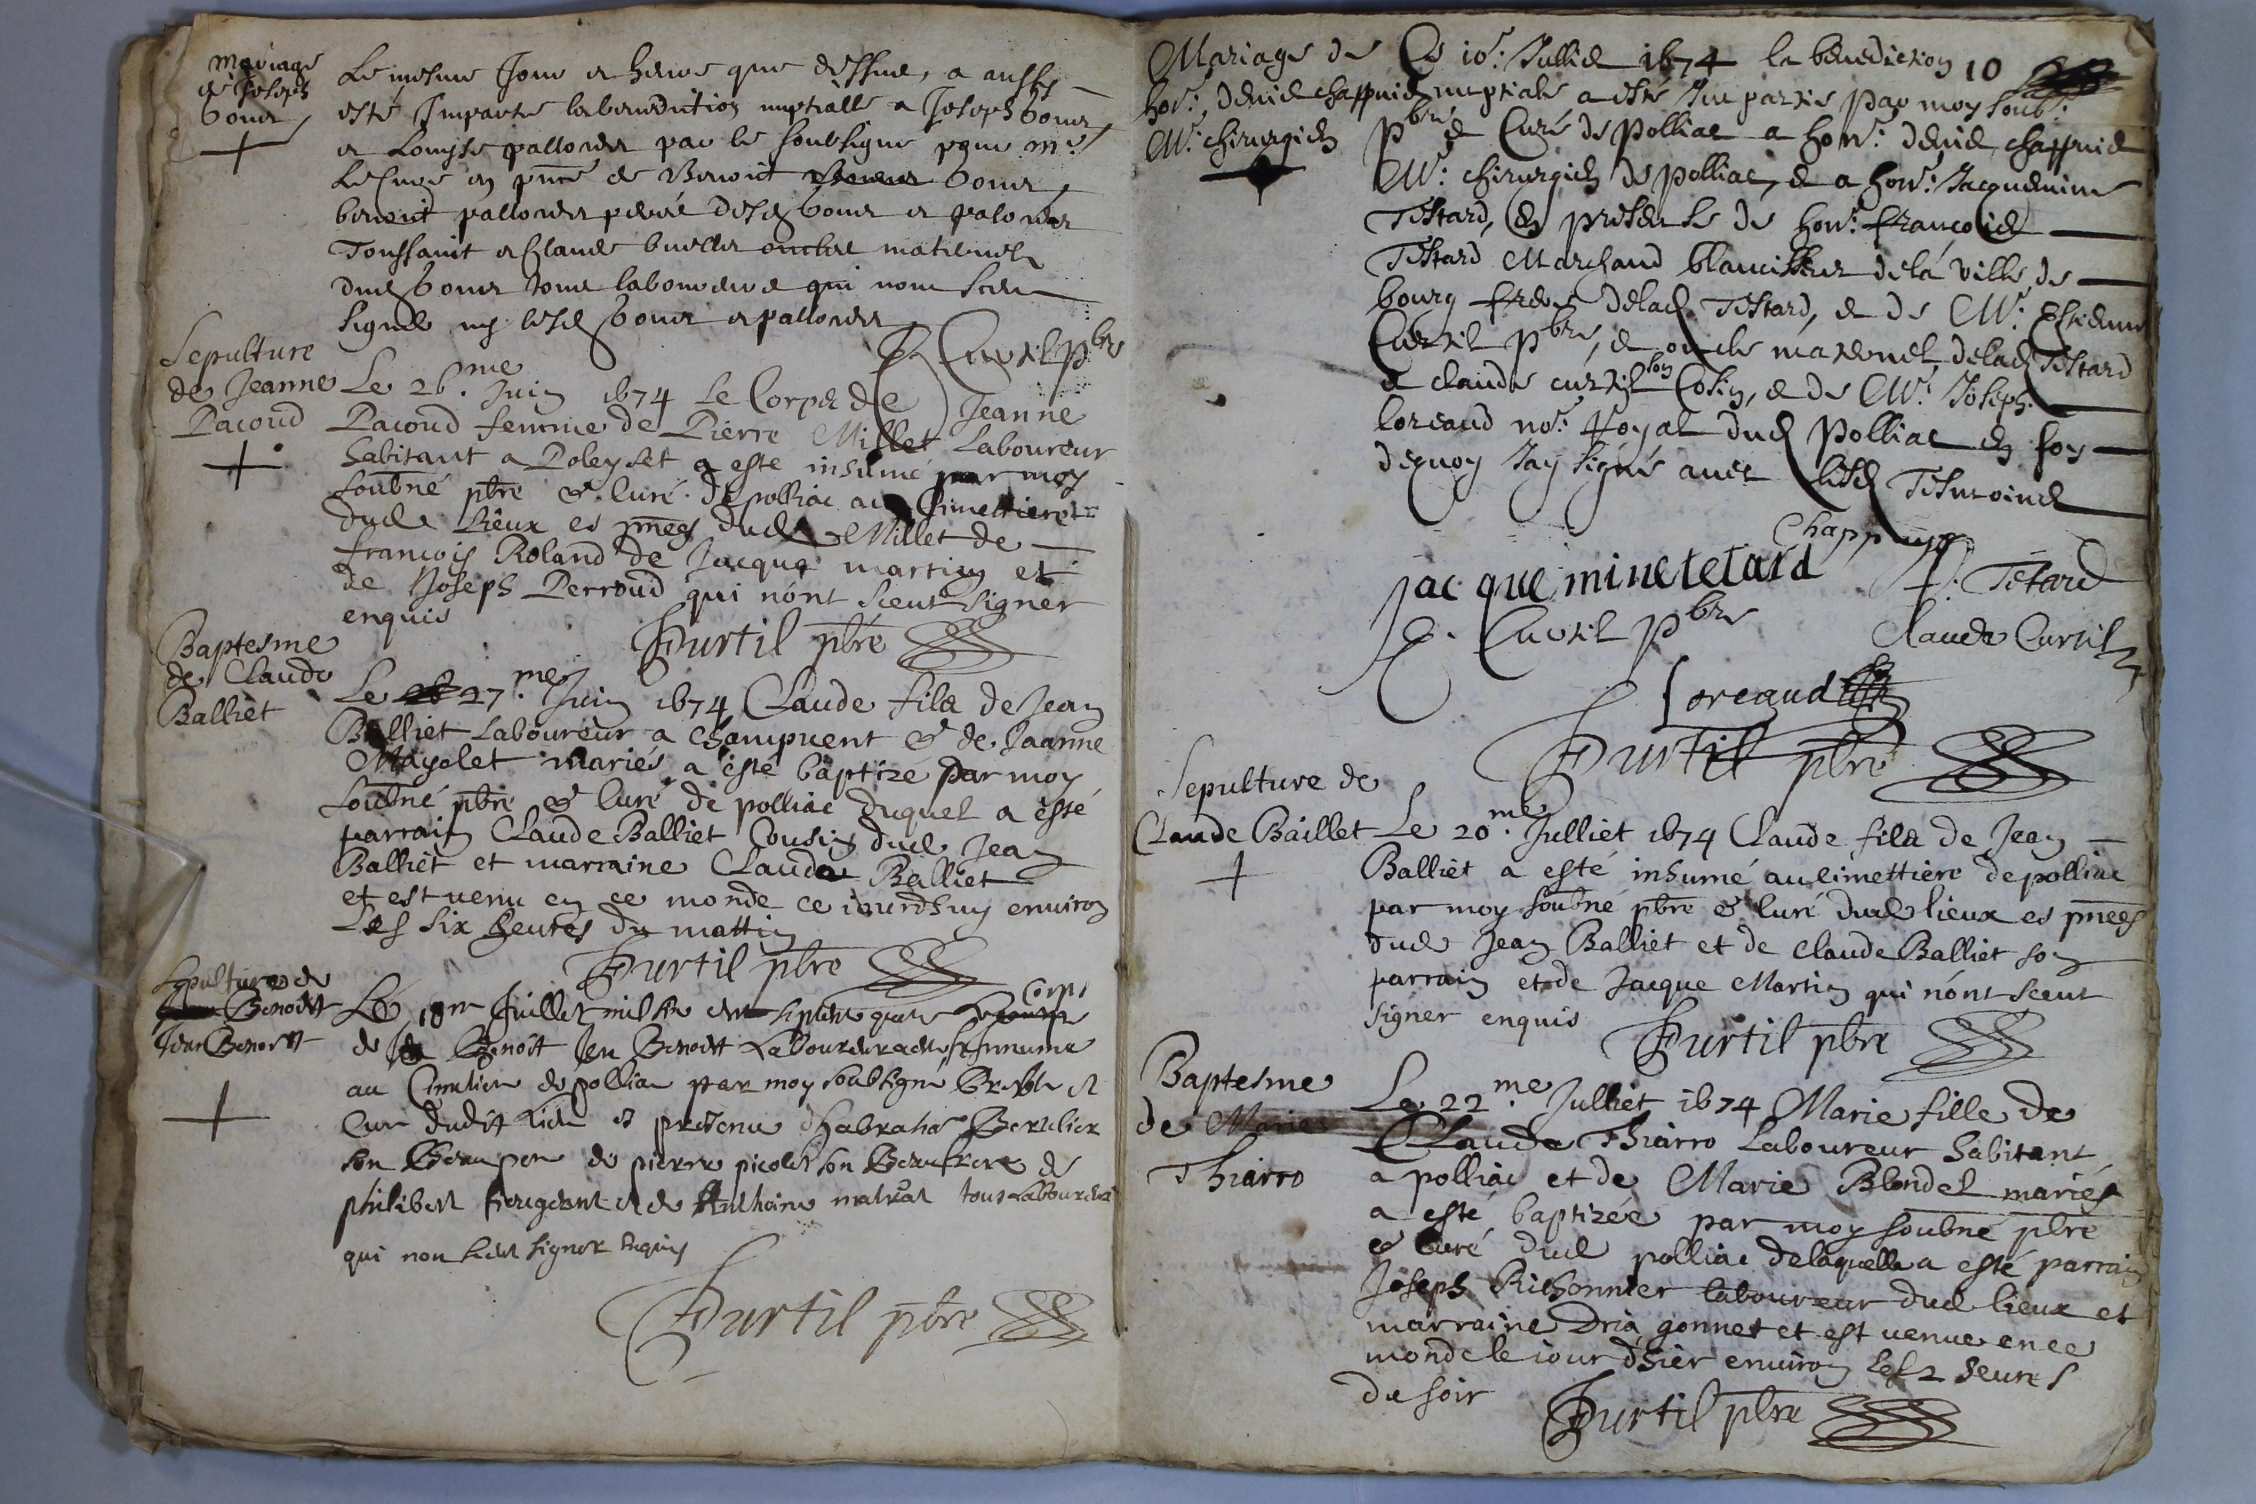 mariage
de Joseph
bouvr
Le mesme Jour et heure que dessus, a aussy
esté Impartie la benediction nuptialle a Joseph bouvr
et Louyse pallordet par le soubsigne pour mre
Le Curé en pnce de Benoit bouvr,
benoit pallordet peres desd bouvr et palordet
Toussaint et Claude buellet oncles maternels
dud bouvr tous laboureurs qui nont sceu
signer ny lesd bouvr et pallordet
E. Curtil pbre
Sepulture
de Jeanne
Pacoud
Le 26.me Juin 1674 Le Corps de Jeanne
Pacoud femme de Pierre Millet Laboureur
habitant a Poleyset a esté inhumé par moy
soubné pbre & Curé de polliac au Cimettiere
dud Lieux es pnces dud Millet de
francois Roland de Jacque martin et
de Joseph Perroud qui nont sceut signer
enquis
Curtil pbre
Baptesme
de Claude
Balliet
Le 27.me Juin 1674 Claude fils de Jean
Balliet Laboureur a Champvent & de Jaanne
Mayolet mariés a esté baptizé par moy
soubné pbre & Curé de polliac duquel a esté
parrain Claude Balliet Cousin dud Jean
Balliet et marraine Clauda Balliet
et est venu en ce monde ce iourdhuy environ
Les six heures du mattin
Curtil pbre
Sepulture de
Benoitt
Jean Benoitt
Le 18me Juillet mil six cent septante quatre Corps
de Benoit Jen Benoitt Laboureur a esté inhume
au Cimetiere de polliac par moy soubsigné Prebtre et
Cure dudit Lieu et presence dhabraha Bertelier
son Beaupere de pierre picolet son Beaufrere de
philibert et de Anthoine tous Laboureurs
qui non sceut signer Enquis
Curtil pbre
Mariage de
honr. denis chappuis
Mr. chirurgien
Ce 10e. Jullie 1674 la benediction 10
nuptiale a esté Impartie par moy soub.
pbre et Curé de Polliac a honr. denis chappuis
Mr. chirurgien de polliac, et a honr. Jacquemine
Testard, en presence de honr. francois
Testard Marchand blanchisseur de la ville de
bourg frere de lad Testard, et de Mr. Estienne
Curtil pbre, et oncle maternel de lad Testard
et claude curtil son Cosin, et de Mr. Joseph
loreaud nore. Royal dud Polliac en foy
dequoy Jay signé avec lesd Tesmoins
Chappuys
Jacqueminetetard
f. Tetard
E. Curtil pbre
Claude Curtil
Loreaud
Curtil pbre
Sepulture de
Claude Baillet
Le 20.me Julliet 1674 Claude fils de Jean
Balliet a esté inhumé au cimettiere de polliac
par moy soubné pbre & Curé dud lieux es pnces
dud Jean Balliet et de Claude Balliet son
parrain et de Jacque Martin qui nont sceut
signer enquis
Curtil pbre
Baptesme
de Marie
Thiarro
Le 22.me Julliet 1674 Marie fille de
Claude Thiarro Laboureur habitant
a polliac et de Marie Blondel mariés
a esté baptizée par moy soubné pbre
& Curé dud polliac de laquella a esté parrain
Joseph Richonnier laboureur dud lieux et
marraine Dria gonnet et est venue en ce
monde le iour dhier environ les 2 heures
du soir
Curtil pbre